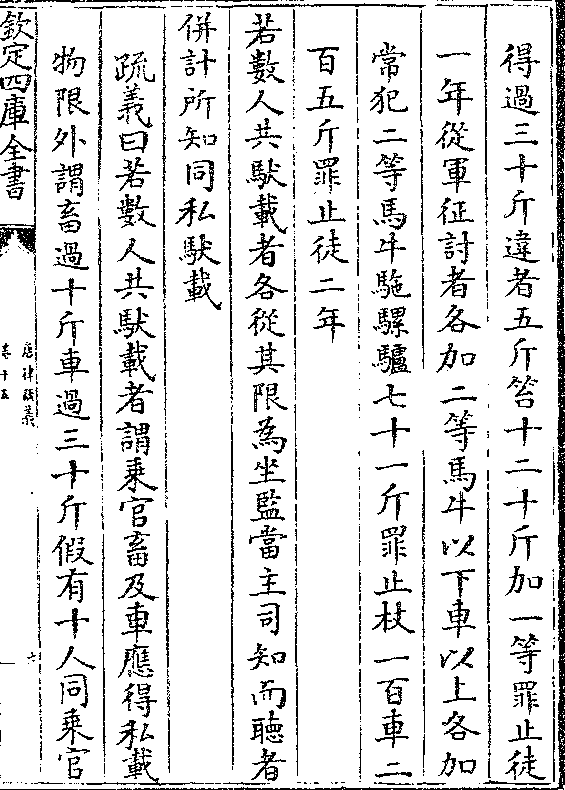 得過三十斤違者五斤笞十二十斤加一等罪止徒
一年從軍征討者各加二等馬牛以下車以上各加
常犯二等馬牛駞騾驢七十一斤罪止杖一百車二
百五斤罪止徒二年
若數人共馱載者各從其限為坐監當主司知而聽者
併計所知同私馱載
疏義曰若數人共馱載者謂乘官畜及車應得私載
物限外謂畜過十斤車過三十斤假有十人同乘官
欽定四庫全書
唐律疏義
卷十五
六